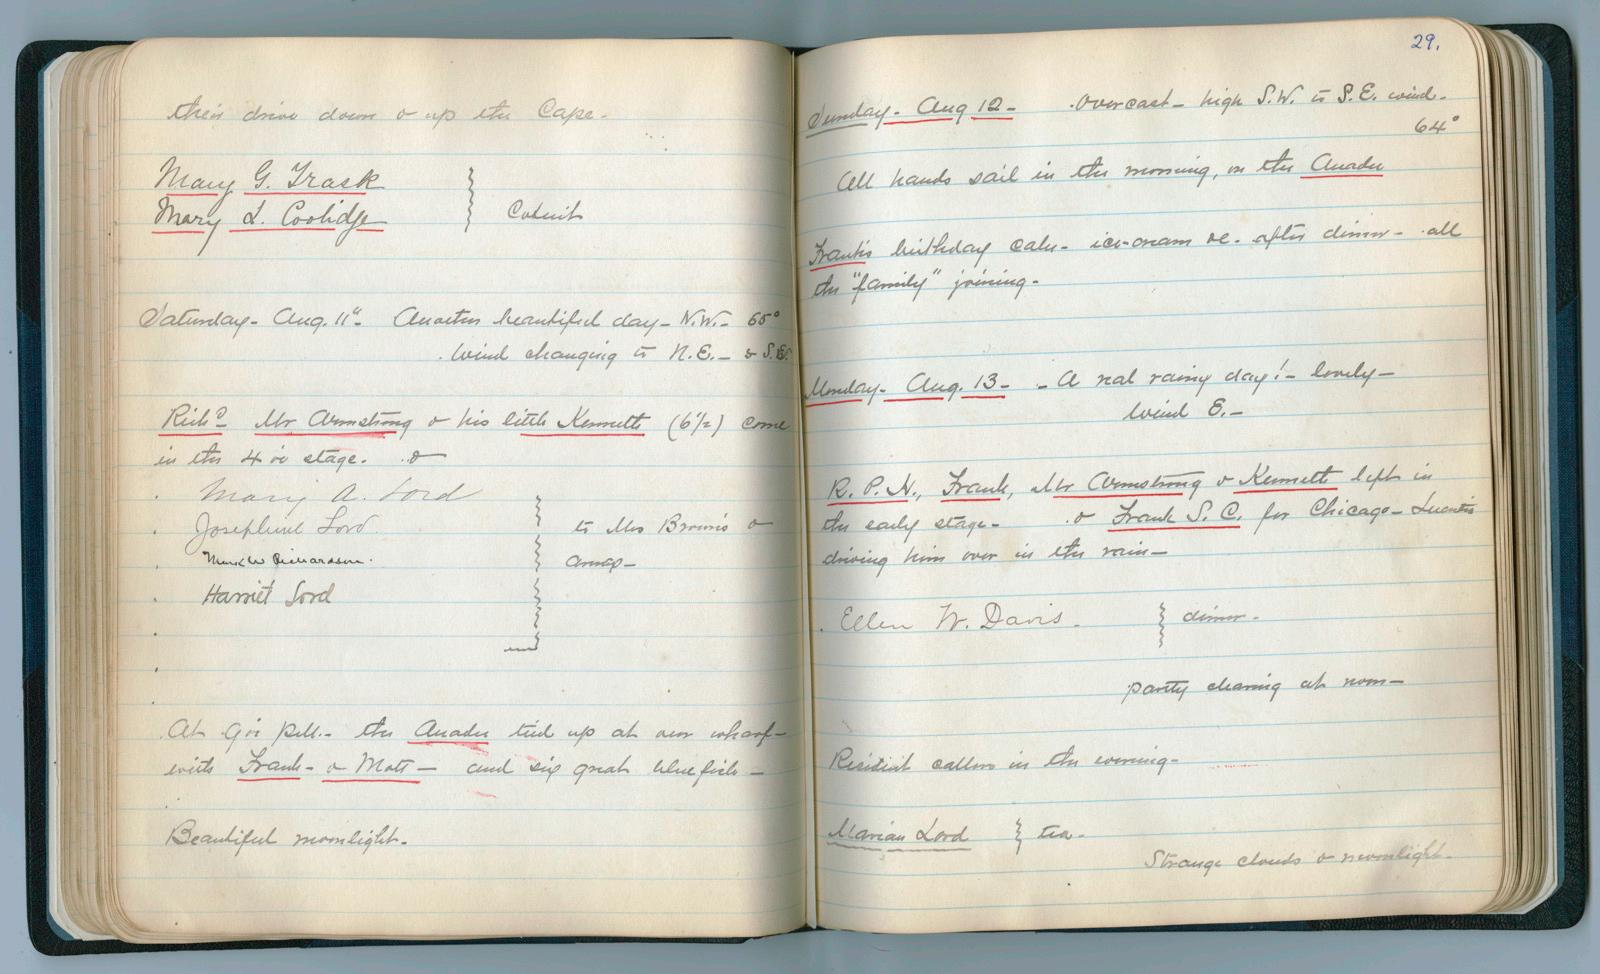 their drive down & up the Cape.
Mary G. Trask
Mary L. Coolidge
Cotuit
Saturday - Aug. 11" - Another beautiful day - N.W. - 65°
Wind changing to N.E. - & S.E.
Rich^d Mr Armstrong & his little Kenneth (6½) come
in the 4 oc stage. &
Mary A. Lord
Josephine Lord
Mark W Richardson.
Harriet Lord
to Mrs Brown's &
At 9 oc P.M. - the Anadu tied up at our wharf -
with Frank - & Mott - and six great bluefish -
Beautiful moonlight.
29.
Sunday - Aug 12 - Overcast - high S.W. to S.E. wind -
64°
All hands sail in the morning, on the Anadu
Frank's birthday cake - ice-cream &c. after dinner - all
the "family" joining -
Monday - Aug. 13 - - A real rainy day! - lovely -
Wind E. -
R. P. H., Frank, Mr Armstrong & Kenneth left in
the early stage - & Frank S. C. for Chicago -
driving him over in the rain -
Ellen W. Davis -
dinner -
partly clearing at noon -
Resident callers in the evening -
Marian Lord
tea -
Strange clouds & moonlight -